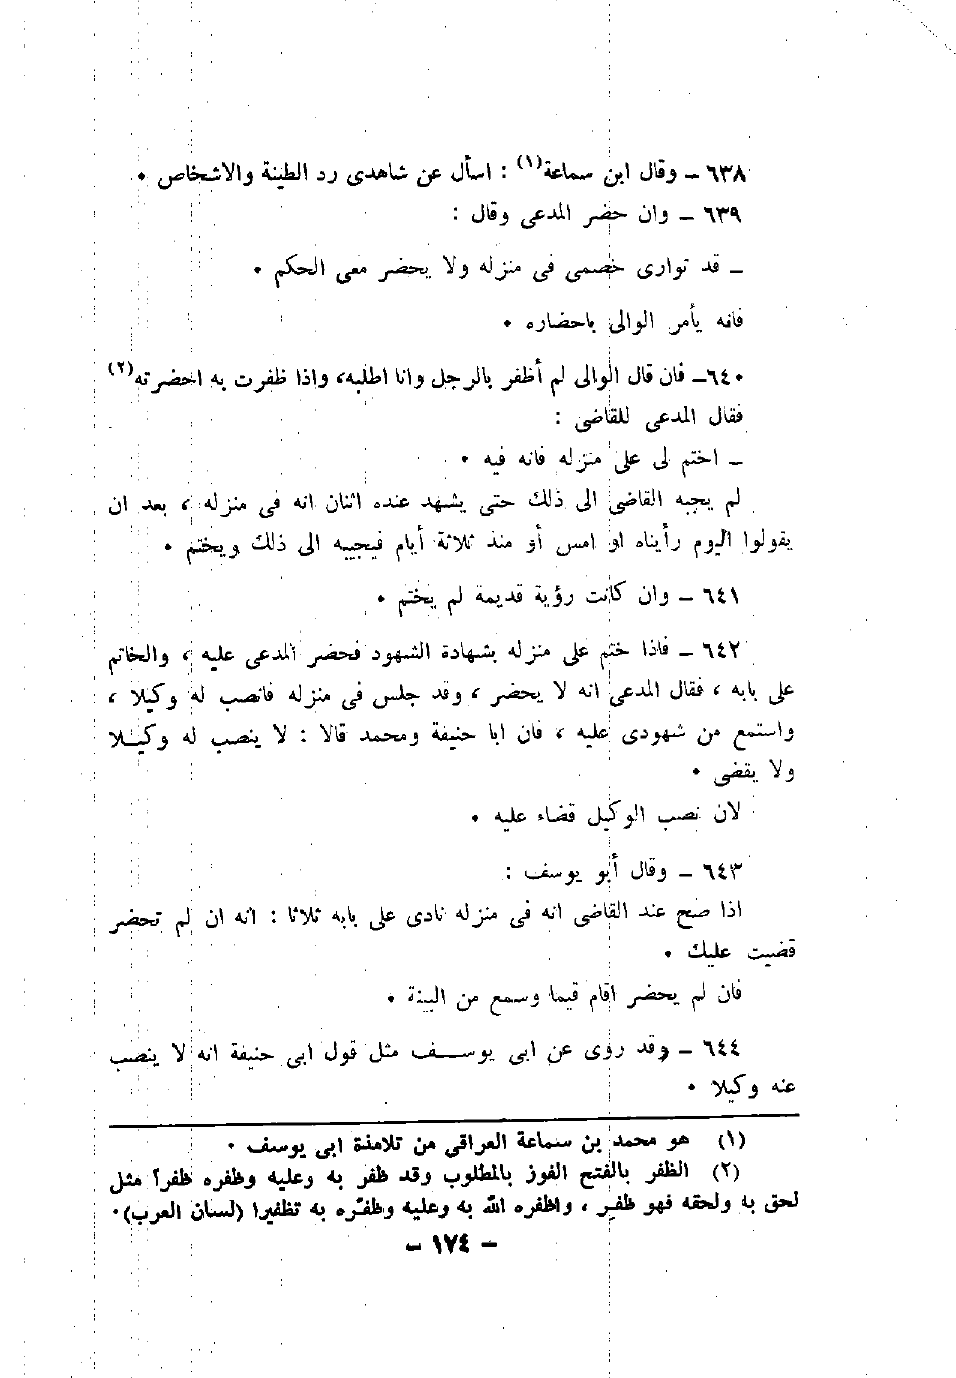 ٦٣٨ ــ وقال ابن سماعة(١) : اسأل عن شاهدى رد الطينة والاشخاص ٠
٦٣٩ ــ وان حضر المدعى وقال :
ــ قد توارى خصمى فى منزله ولا يحضر معى الحكم ٠
فانه يأمر الوالى باحضاره ٠
٦٤٠ــ فان قال الوالى لم أظفر بالرجل وانا اطلبه، واذا ظفرت به احضرته(٢)
فقال المدعى للقاضى :
ــ اختم لى على منزله فانه فيه ٠
لم يجبه القاضى الى ذلك حتى يشهد عنده اثنان انه فى منزله ، بعد ان
يقولوا اليوم رأيناه او امس أو منذ ثلاثة أيام فيجيبه الى ذلك ويختم ٠
٦٤١ ــ وان كانت رؤية قديمة لم يختم ٠
٦٤٢ ــ فاذا ختم على منزله بشهادة الشهود فحضر المدعى عليه ، والخاتم
على بابه ، فقال المدعى انه لا يحضر ، وقد جلس فى منزله فانصب له وكيلا ،
واستمع من شهودى عليه ، فان ابا حنيفة ومحمد قالا : لا ينصب له وكيــلا
ولا يقضى ٠
لان نصب الوكيل قضاء عليه ٠
٦٤٣ ــ وقال أبو يوسف :
اذا صح عند القاضى انه فى منزله نادى على بابه ثلاثا : انه ان لم تحضر
قضيت عليك ٠
فان لم يحضر اقام قيما وسمع من البينة ٠
٦٤٤ ــ وقد روى عن ابى يوســـف مثل قول ابى حنيفة انه لا ينصب
عنه وكيلا ٠
(١) هو محمد بن سماعة العراقي من تلامذة ابى يوسف ٠
(٢) الظفر بالفتح الفوز بالمطلوب وقد ظفر به وعليه وظفره ظفراً مثل
لحق به ولحقه فهو ظفر ، واظفره الله به وعليه وظفّره به تظفيرا (لسان العرب)٠
ــ ١٧٤ ــ